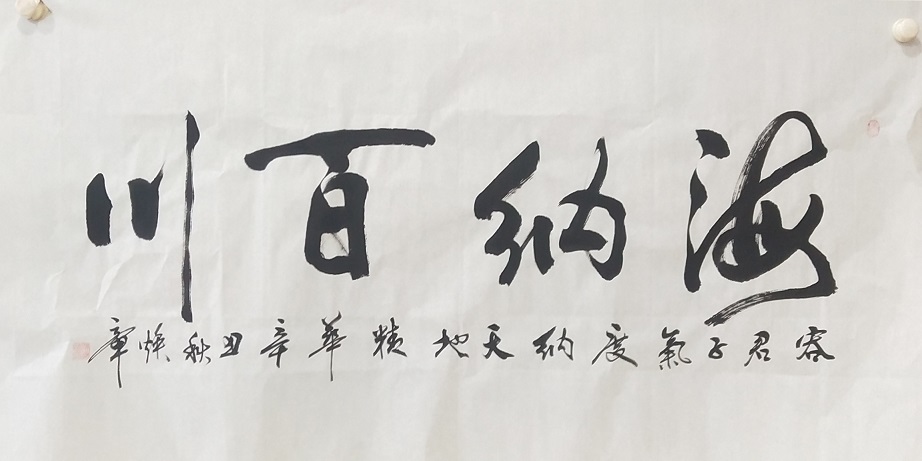 海纳百川
容君子氣度纳天地精華辛丑秋焕章